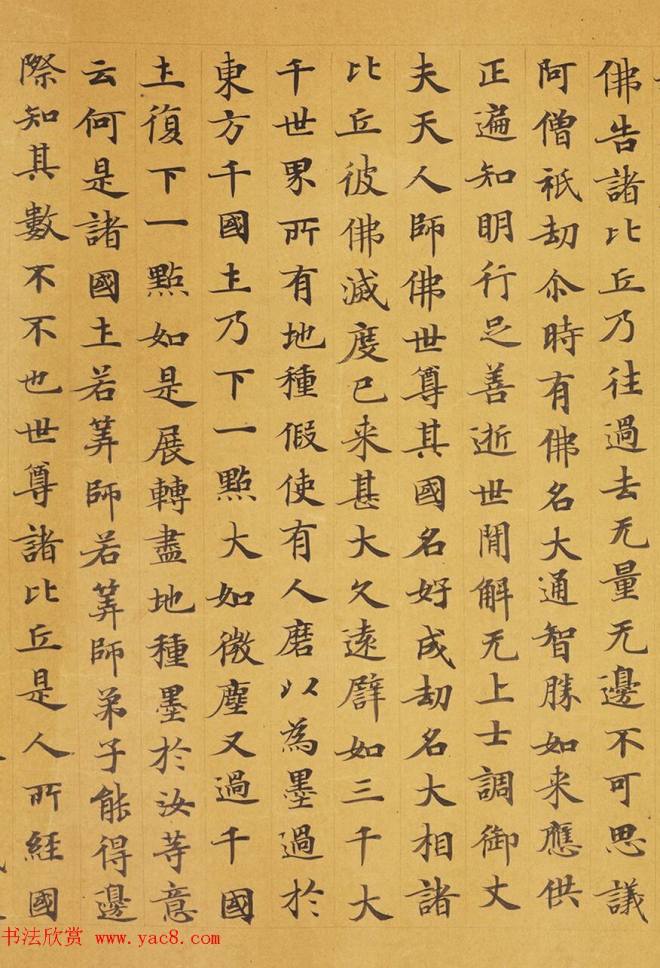 佛告諸比丘乃往過去无量无邊不可思議
阿僧祇劫尒時有佛名大通智勝如来應供
正遍知明行足善逝世間解无上士調御丈
夫天人師佛世尊其國名好成劫名大相諸
比丘彼佛滅度已来甚大久遠譬如三千大
千世界所有地種假使有人磨以為墨過於
東方千國土乃下一點大如微塵又過千國
土復下一點如是展轉盡地種墨於汝等意
云何是諸國土若筭師若筭師弟子能得邊
際知其數不不也世尊諸比丘是人所經國
书法欣赏 www.yac8.com